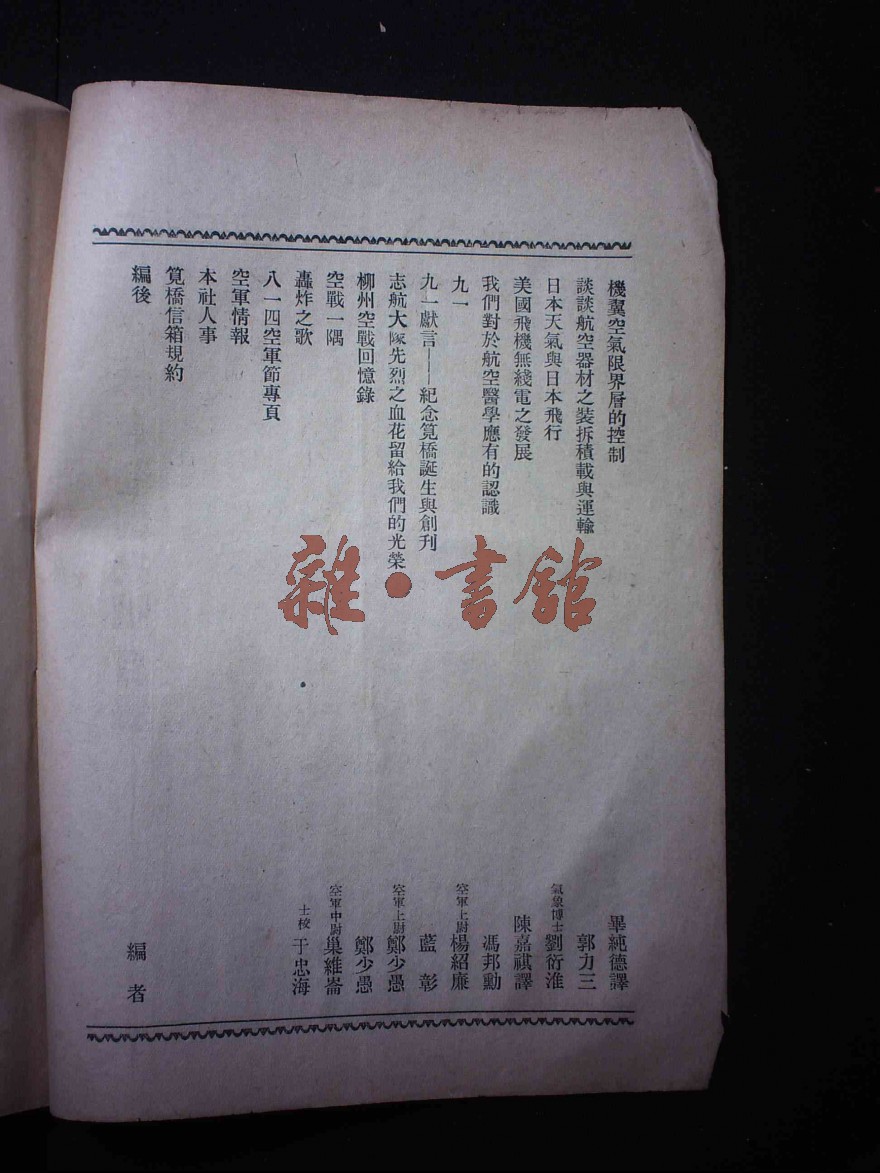 機翼空氣限界層的控制 畢純德譯
談談航空器材之裝拆積載與運輸 郭力三
日本天氣與日本飛行 氣象博士劉衍淮
美國飛機無綫電之發展 陳嘉祺譯
我們對於航空醫學應有的認識 馮邦勳
九一 空軍上尉楊紹廉
九一獻言——紀念筧橋誕生與創刊 藍彰
志航大隊先烈之血花留給我們的光榮 空軍上尉鄭少愚
柳州空戰回憶錄 鄭少愚
空戰一隅 空軍中尉巢維崙
轟炸之歌 士校于忠海
八一四空軍節專頁
空軍情報
本社人事
筧橋信箱規約
編後 編者
雜·書館